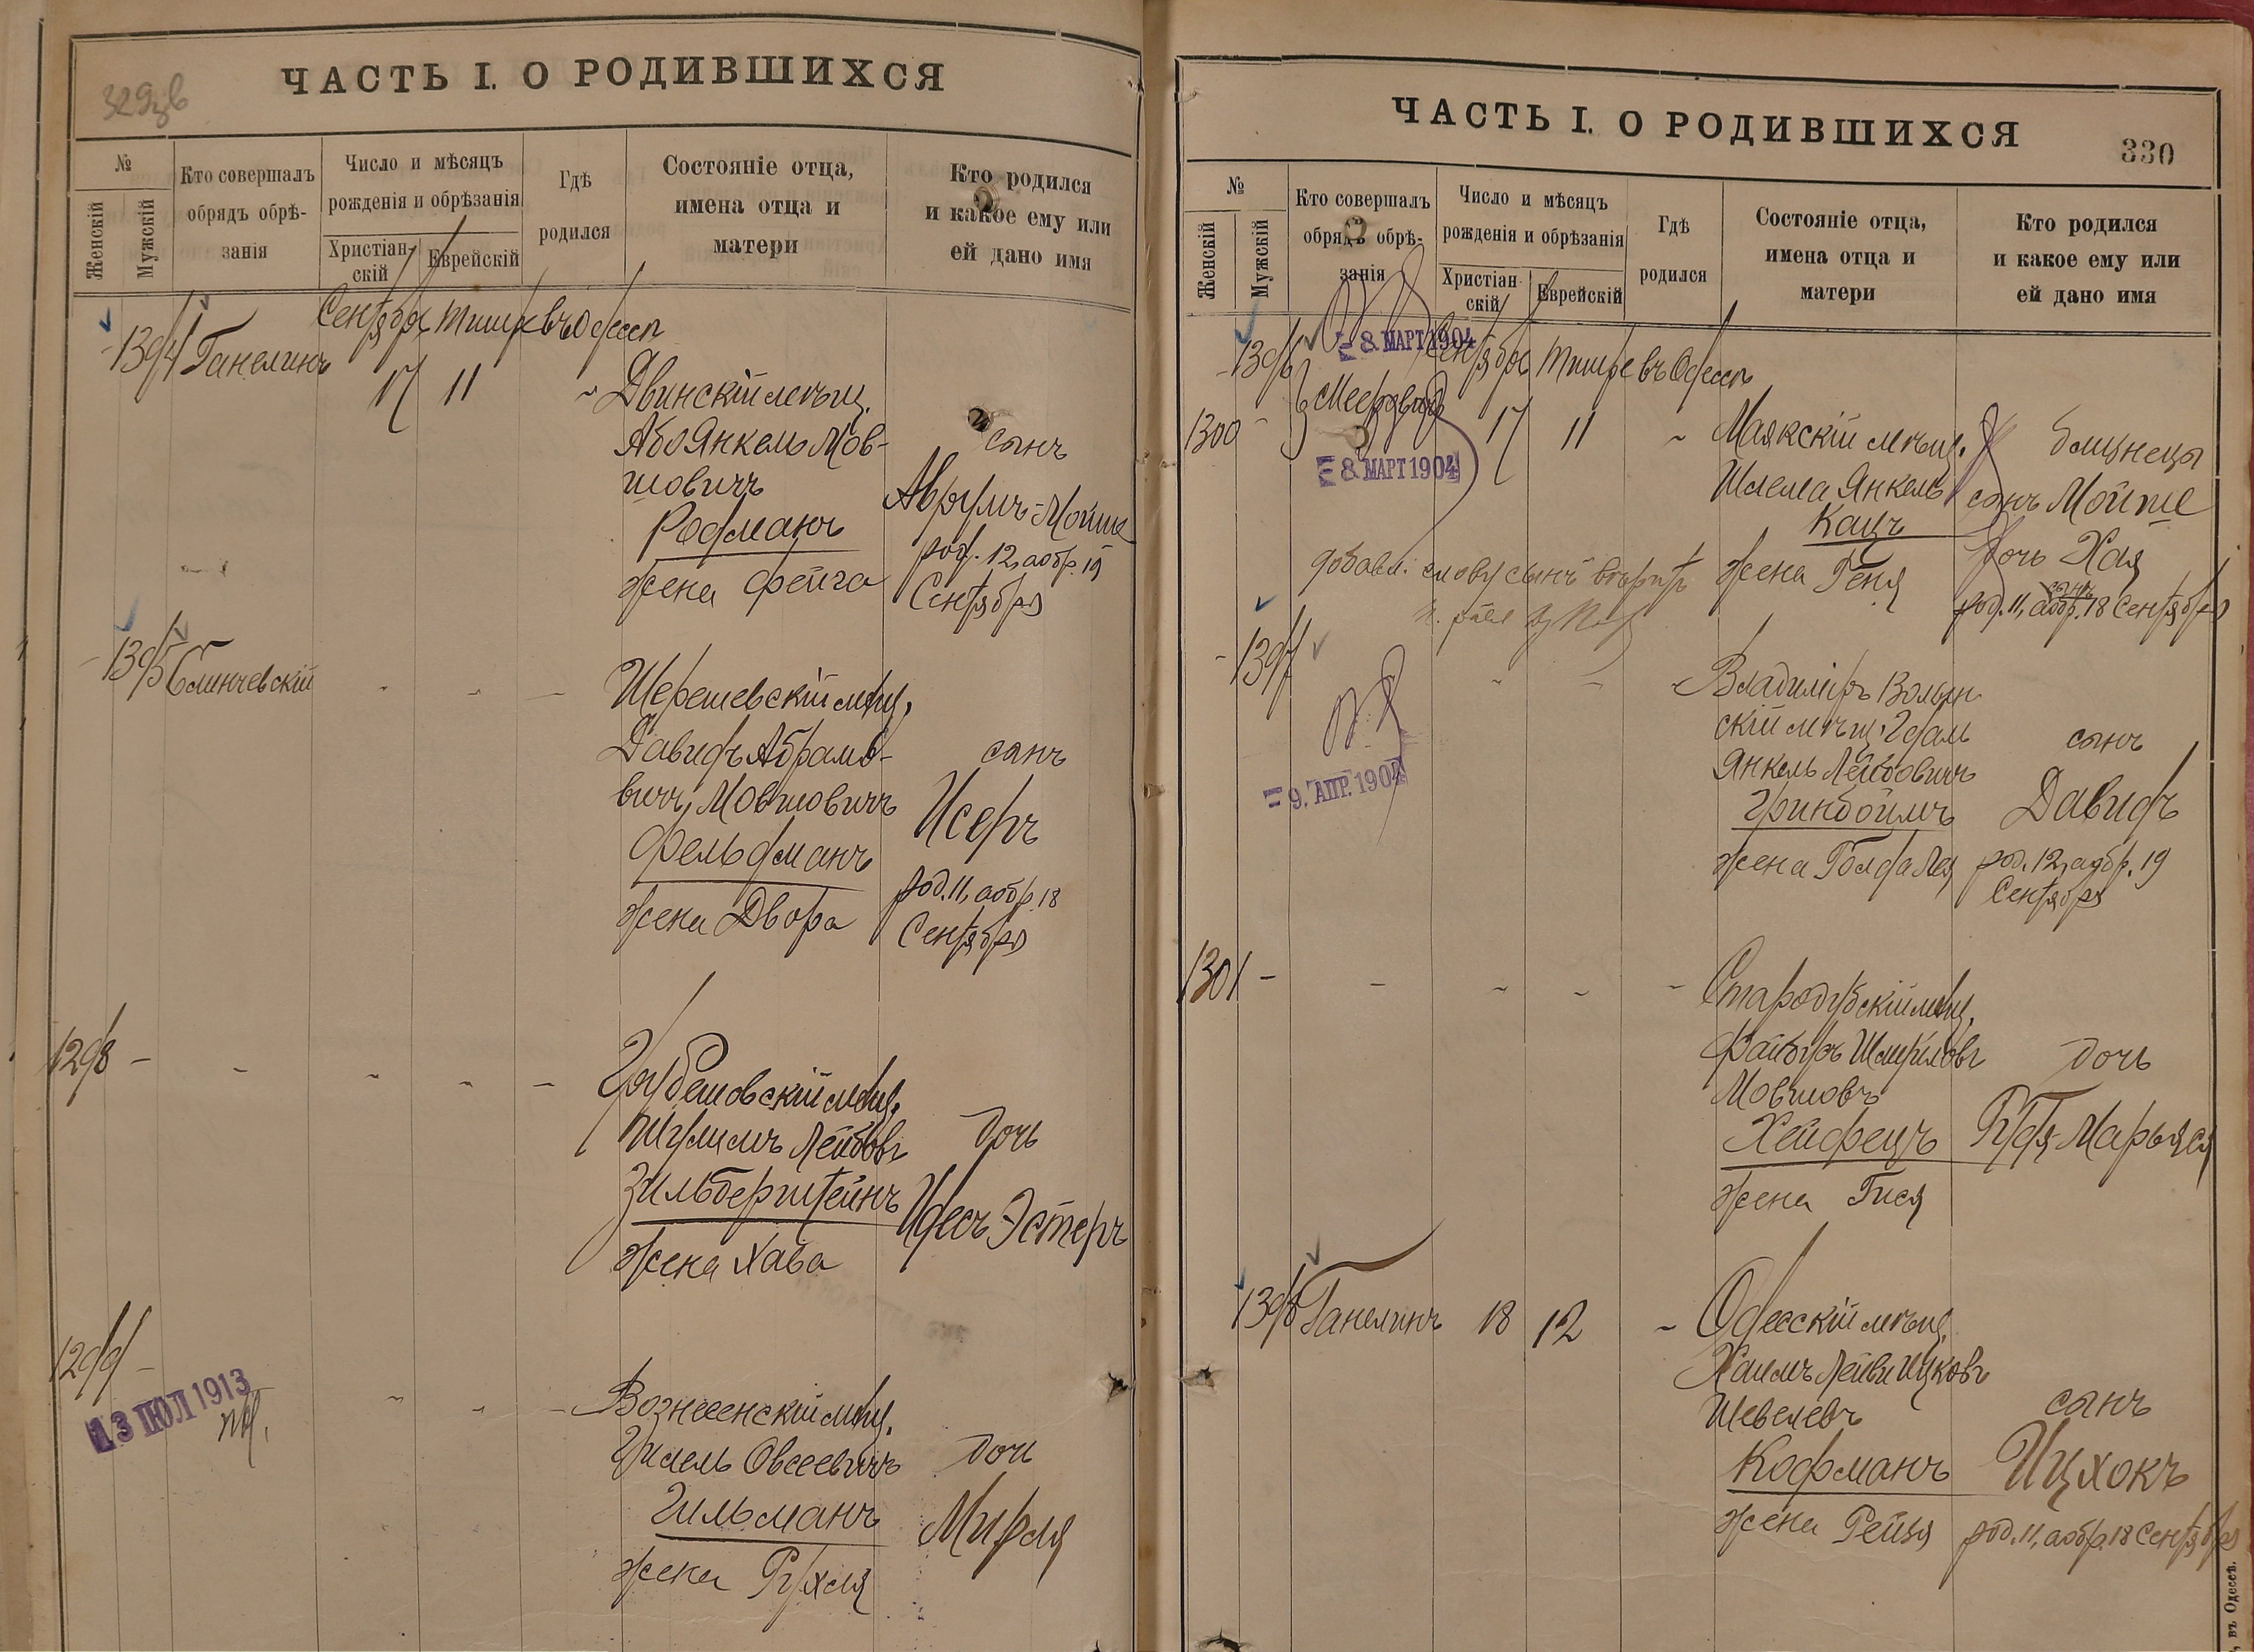 ЧАСТЬ I. О РОДИВШИХСЯ
№
Женскій
Мужскій
Кто совершалъ
обрядъ обрѣ-
занія
Число и мѣсяцъ
рожденія и обрѣзанія
Христіан-
скій
Еврейскій
Гдѣ
родился
Состояніе отца,
имена отца и
матери
Кто родился
и какое ему или
ей дано имя
Сентября Тишре въ Одессѣ
1394 Ганелинъ
17 11
Двинскій мѣщ.
Або Янкель Мов-
шовичъ
Родманъ
жена Фейга
сынъ
Аврумъ-Мойше
род. 12, а обр. 19
Сентября
1395 Слинчевскій
Шерешевскій мѣщ.
Давидъ Абрамо-
вичъ Мовшовичъ
Фельдманъ
жена Двора
сынъ
Исеръ
род. 11, а обр. 18
Сентября
1298 -
Грубешовскій мѣщ.
Шулимъ Лейбовъ
Зильберштейнъ
жена Хава
дочь
Идесъ Эстеръ
1299 -
13 ІЮЛ 1913
Вознесенскій мѣщ.
Гилель Овсеевичъ
Гильманъ
жена Рухля
дочь
Мирля
ЧАСТЬ I. О РОДИВШИХСЯ
330
№
Женскій
Мужскій
Кто совершалъ
обрядъ обрѣ-
занія
Число и мѣсяцъ
рожденія и обрѣзанія
Христіан-
скій
Еврейскій
Гдѣ
родился
Состояніе отца,
имена отца и
матери
Кто родился
и какое ему или
ей дано имя
8 МАРТ 1904
Сентября Тишре въ Одессѣ
1396
1300 -
Мееровичъ
8 МАРТ 1904
17 11
Маякскій мѣщ.
Шлема Янкель
Кацъ
жена Геня
близнецы
сынъ Мойше
дочь Хая
сынъ
род. 11, а обр. 18 Сентября
1397
9. АПР. 1904
Владиміръ Волын-
скій мѣщ.
Янкель Лейбовичъ
Гринбоймъ
жена Голда Лея
сынъ
Давидъ
род. 12, а обр. 19
Сентября
1301 -
Стародубскій мѣщ.
Файбушъ Шмерковъ
Мовшовъ
Хейфецъ
жена Гися
дочь
Марьяся
1398 Ганелинъ 18 12
Одесскій мѣщ.
Хаимъ Лейви Ицковъ
Шевелевъ
Кофманъ
жена Рейзя
сынъ
Ицхокъ
род. 11, а обр. 18 Сентября
въ Одессѣ.